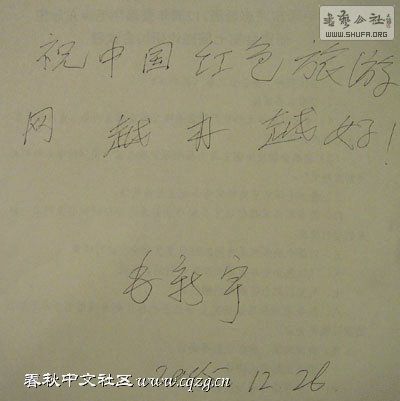 书艺公社
WWW.SHUFA.ORG
祝中国红色旅游
网越办越好！
毛新宇
2005.12.26.
春秋中文社区www.cqzg.cn